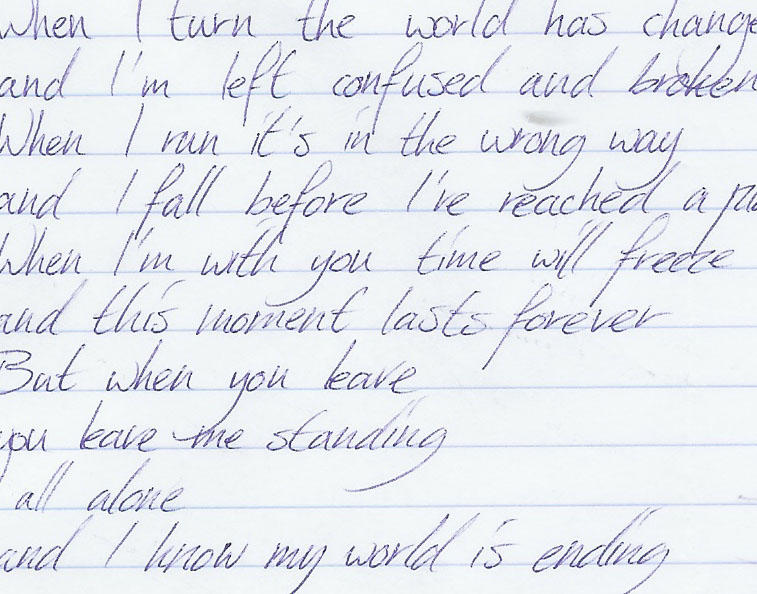 When I turn the world has change
and I'm left confused and broken
When I run it's in the wrong way
and I fall before I've reached a
When I'm with you time will freeze
and this moment lasts forever
But when you leave
you leave me standing
all alone
and I know my world is ending